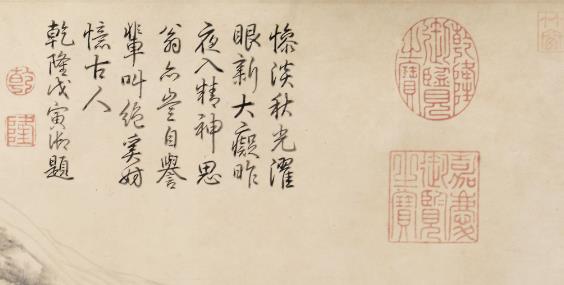 乾隆
御覽
之寶
嘉慶
御覽
之寶
慘淡秋光濯
眼新大癡昨
夜入精神思
翁亦豈自譽
輩叫絕奚妨
憶古人
乾隆戊寅御題
乾
隆